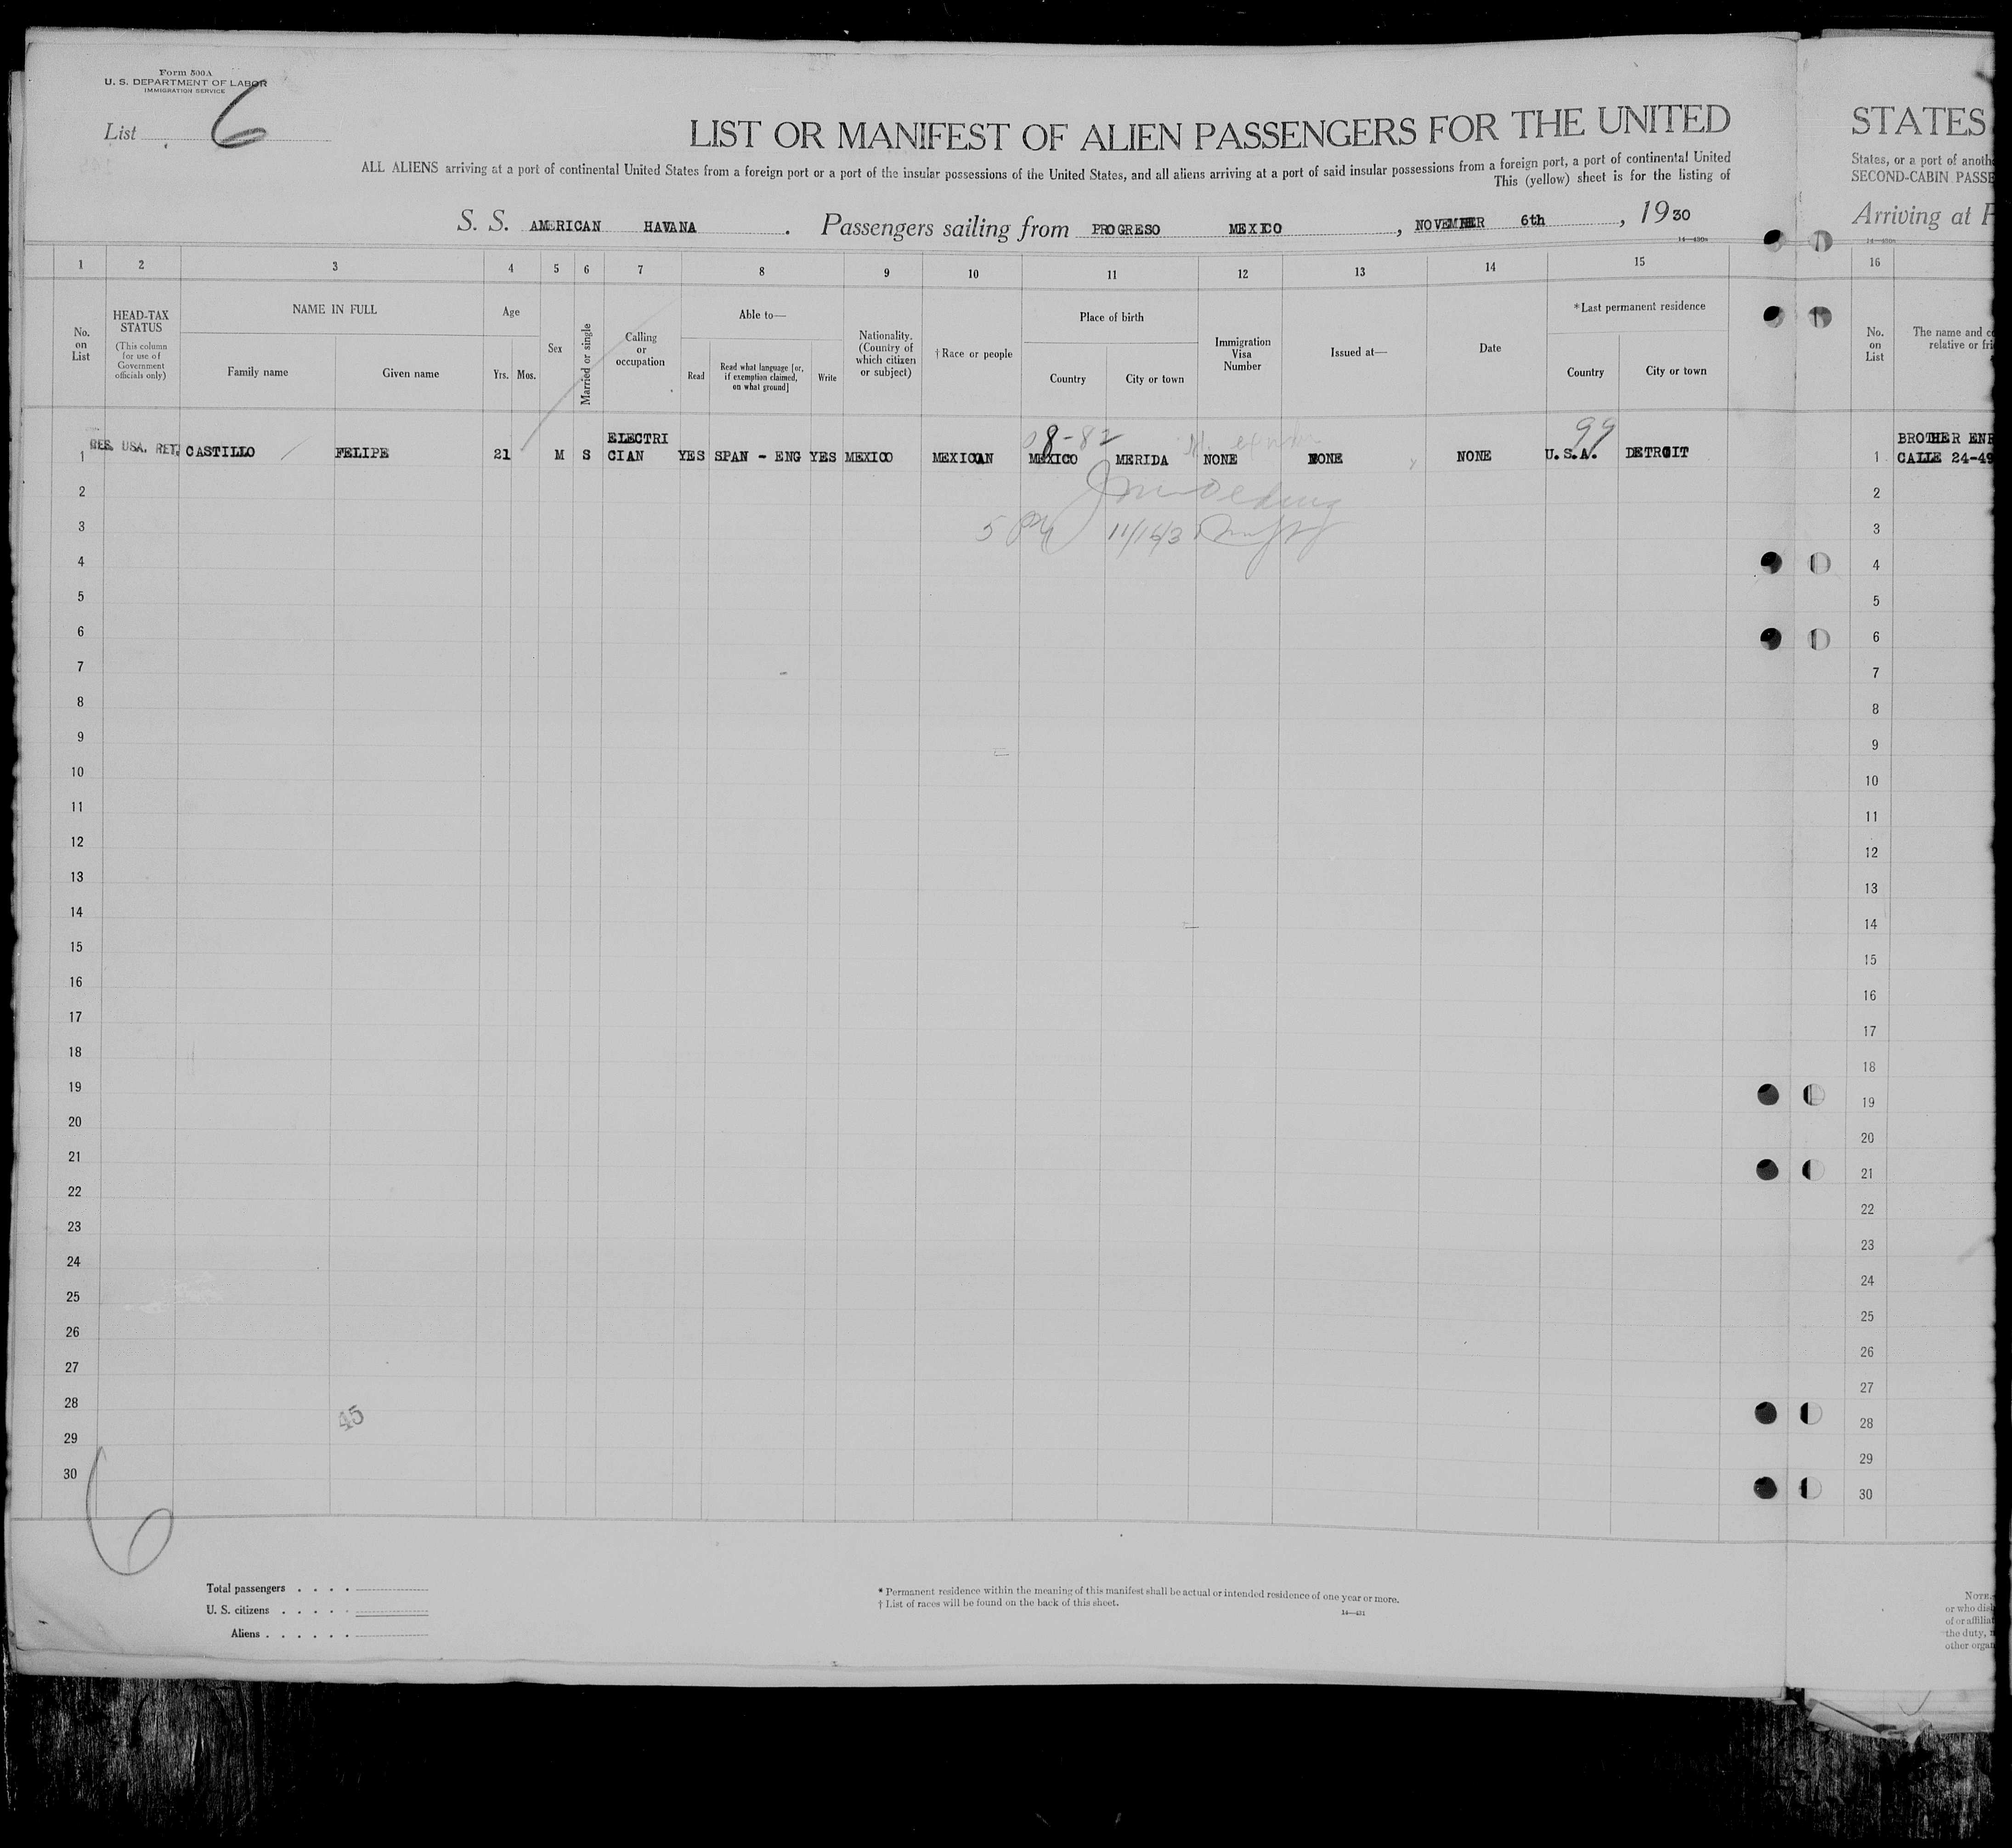 Form 500A
U. S. DEPARTMENT OF LABOR
IMMIGRATION SERVICE
List 6
LIST OR MANIFEST OF ALIEN PASSENGERS FOR THE UNITED
ALL ALIENS arriving at a port of continental United States from a foreign port or a port of the insular possessions of the United States, and all aliens arriving at a port of said insular possessions from a foreign port, a port of continental United
This (yellow) sheet is for the listing of
S. S. AMERICAN HAVANA. Passengers sailing from PROGRESO MEXICO, NOVEMBER 6th, 1930
STATES
States, or a port of anoth
SECOND-CABIN PASSE
Arriving at P
1 2 3 4 5 6 7 8 9 10 11 12 13 14 15 16
No. on List
HEAD-TAX STATUS
(This column for use of Government officials only)
NAME IN FULL
Family name Given name
Age
Yrs. Mos.
Sex
Married or single
Calling or occupation
Able to—
Read
Read what language [or, if exemption claimed, on what ground]
Write
Nationality. (Country of which citizen or subject)
†Race or people
Place of birth
Country City or town
Immigration Visa Number
Issued at—
Date
*Last permanent residence
Country City or town
No. on List
The name and c
relative or fri
08-82
99
1 RES. USA. RET. CASTILLO FELIPE 21 M S ELECTRI CIAN YES SPAN - ENG YES MEXICO MEXICAN MEXICO MERIDA NONE NONE NONE U.S.A. DETROIT
1 BROTHER ENR
CALLE 24-49
2 2
3 3
4 4
5 5
6 6
7 7
8 8
9 9
10 10
11 11
12 12
13 13
14 14
15 15
16 16
17 17
18 18
19 19
20 20
21 21
22 22
23 23
24 24
25 25
26 26
27 27
28 28
45
29 29
30 30
6
Total passengers . . . .
U. S. citizens . . . . .
Aliens . . . . . .
* Permanent residence within the meaning of this manifest shall be actual or intended residence of one year or more.
† List of races will be found on the back of this sheet.
14—431
NOTE.
or who dis
of or affiliat
the duty,
other organ